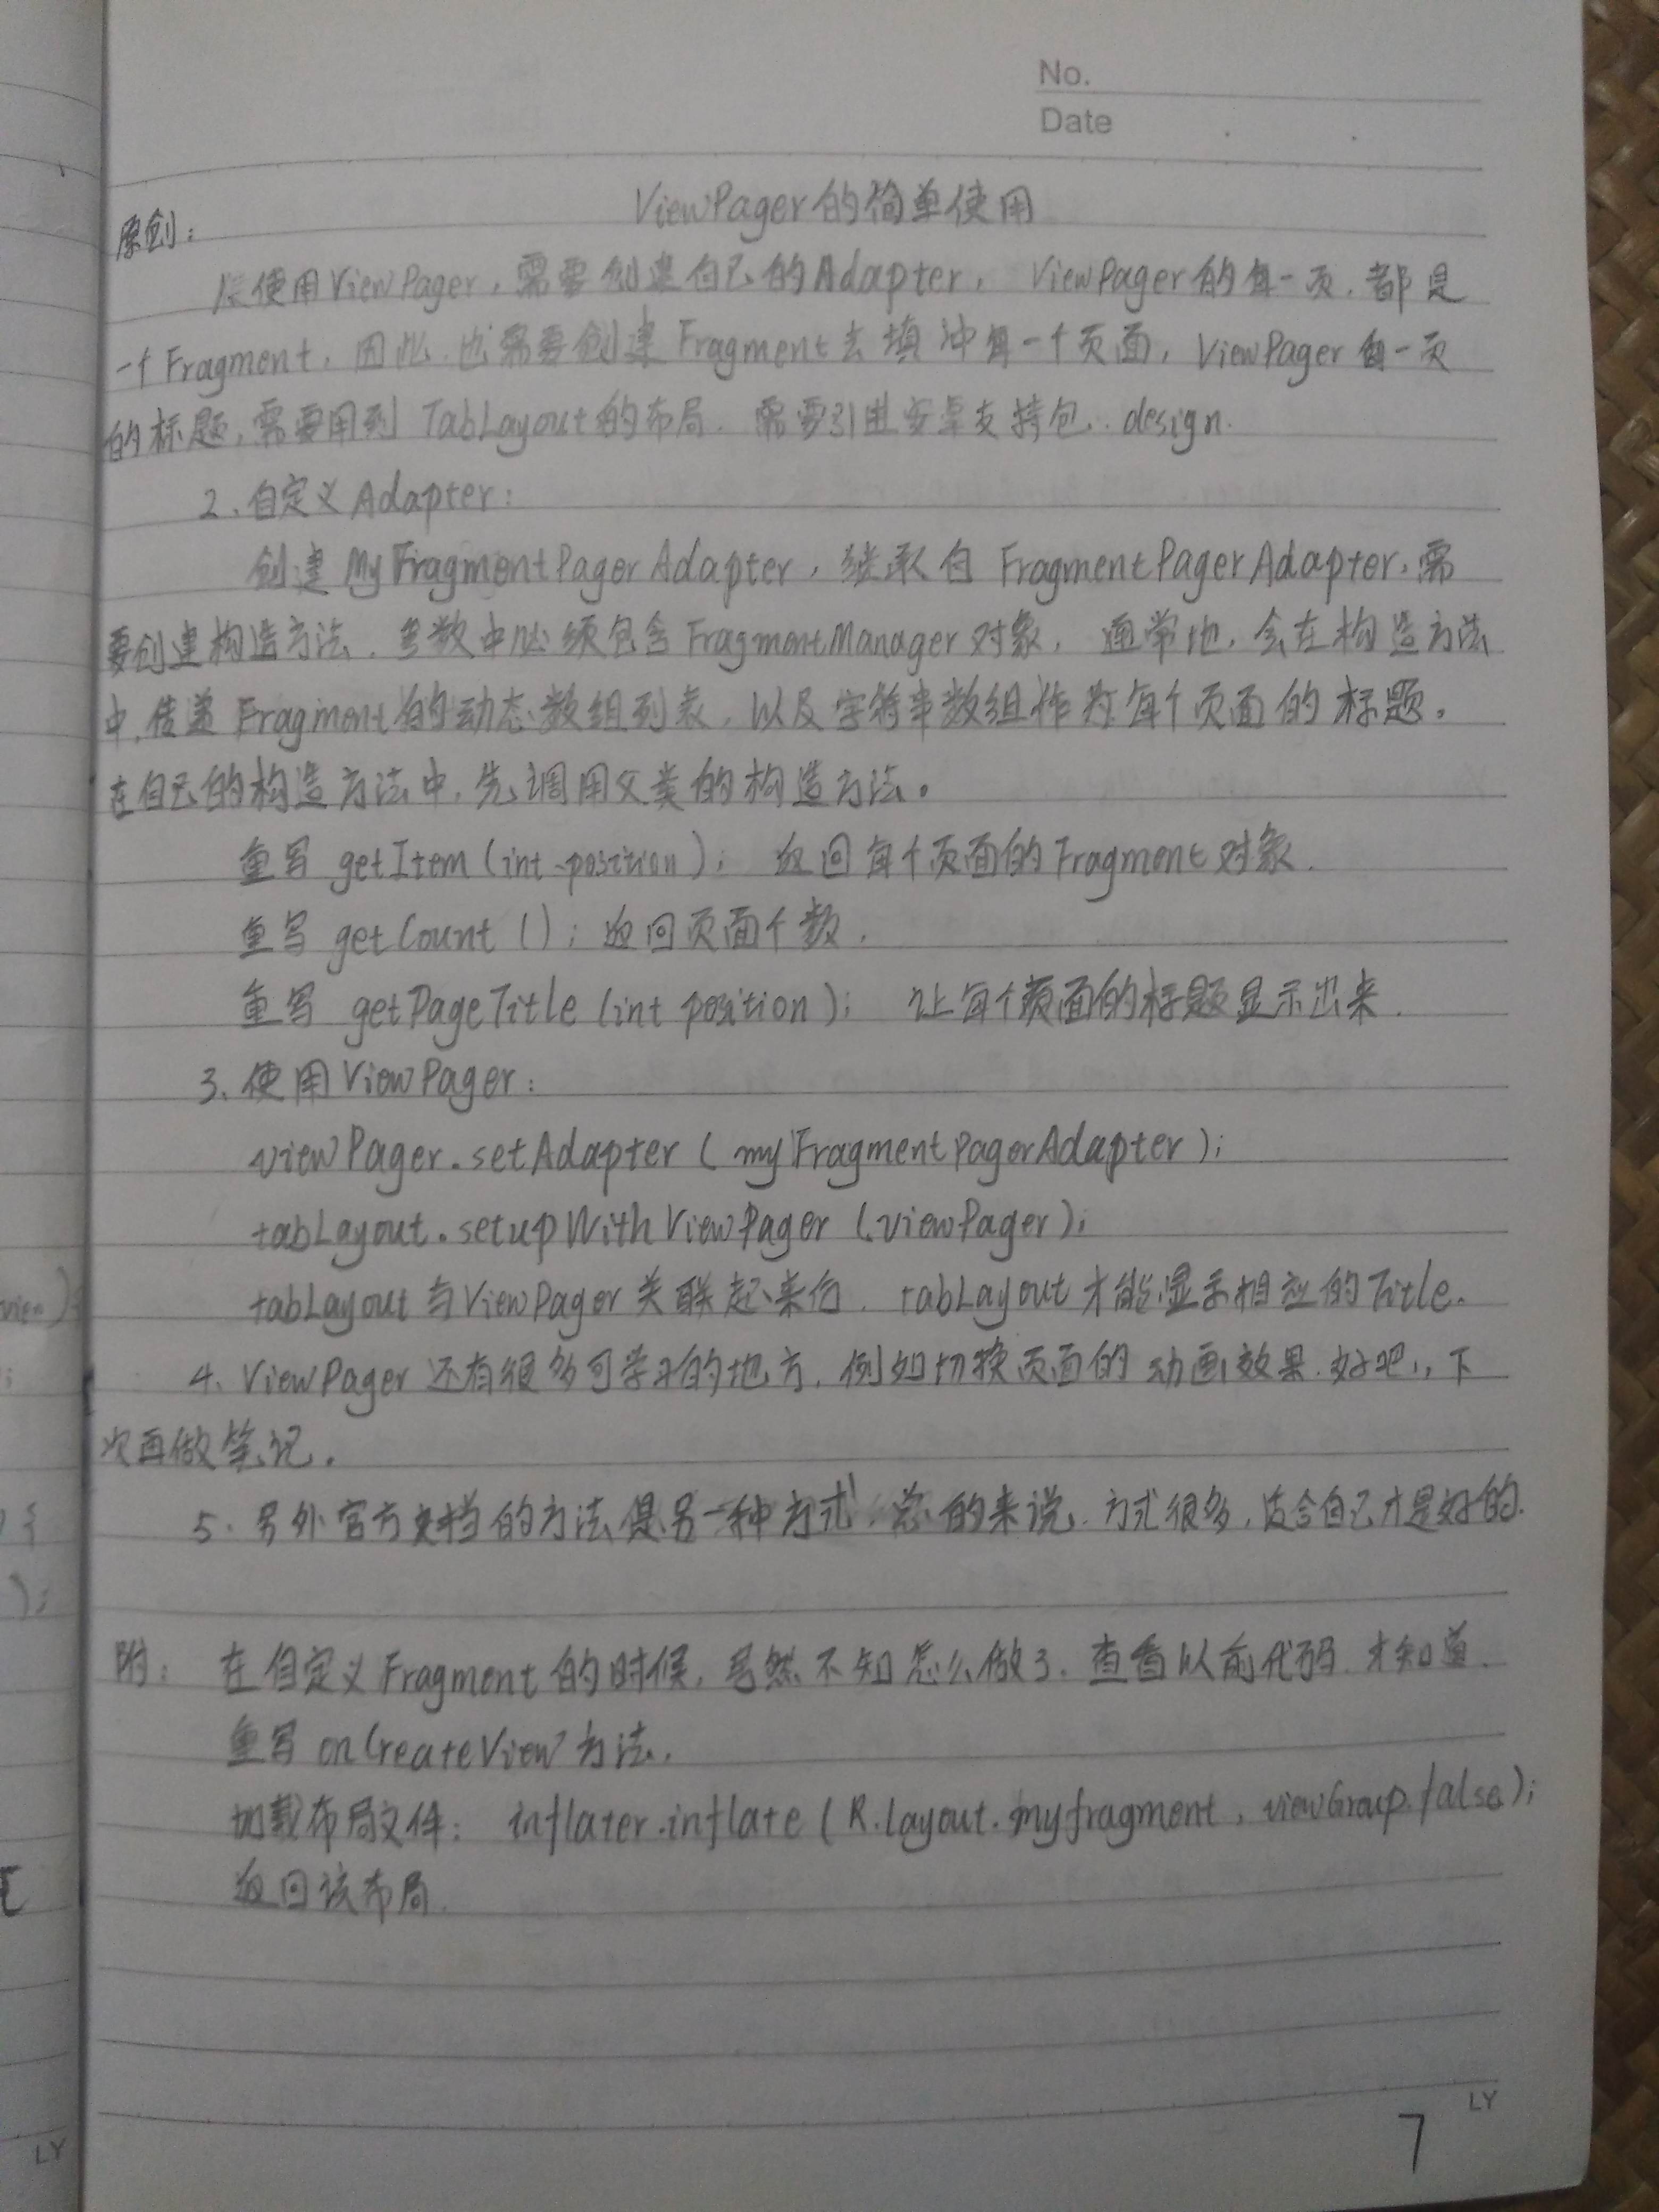 No.
Date
ViewPager的简单使用
原创:
1.使用ViewPager,需要创建自己的Adapter, ViewPager的每一页,都是
一个Fragment,因此,也需要创建Fragment去填冲每一个页面,ViewPager每一页
的标题,需要用到TabLayout的布局.需要引进安卓支持包..design.
2.自定义Adapter:
创建MyFragmentPagerAdapter,继承自FragmentPagerAdapter.需
要创建构造方法.参数中必须包含FragmentManager对象, 通常地,会在构造方法
中,传递Fragment的动态数组列表,以及字符串数组作为每个页面的标题。
在自己的构造方法中,先调用父类的构造方法。
重写 getItem(int position); 返回每个页面的Fragment对象.
重写 getCount(); 返回页面个数.
重写 getPageTitle(int position); 让每个页面的标题显示出来.
3、使用ViewPager:
viewPager.setAdapter(myFragmentPagerAdapter);
tabLayout.setupWithViewPager(viewPager);
tabLayout与ViewPager关联起来后, tabLayout才能显示相应的Title.
4、ViewPager还有很多可学习的地方,例如切换页面的动画效果.好吧,,下
次再做笔记.
5.另外官方文档的方法是另一种方式,总的来说.方式很多,适合自己才是好的.
附: 在自定义Fragment的时候,居然不知怎么做了.查看以前代码,才知道.
重写onCreateView方法.
加载布局文件: inflater.inflate(R.layout.myfragment, viewGroup,false);
返回该布局.
LY
7
view);
);
LY